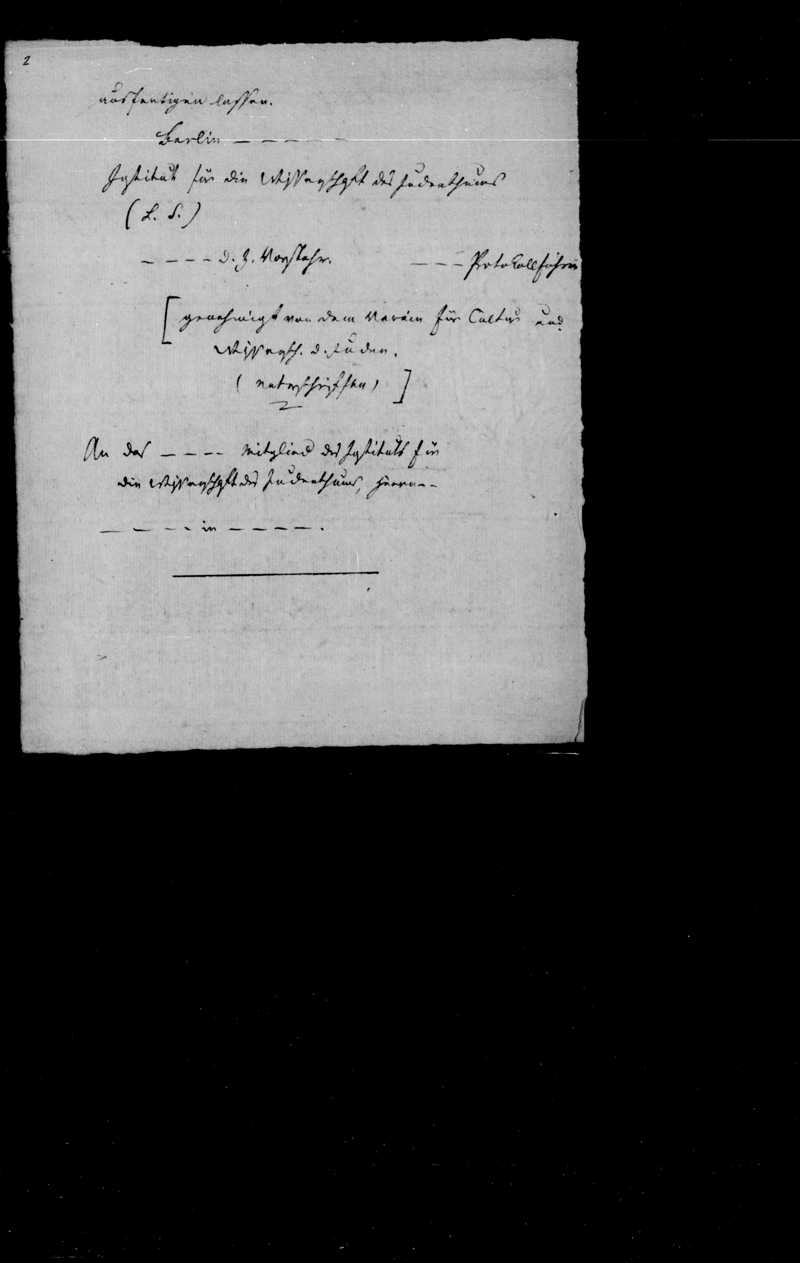 2
ausfertigen lassen.
Berlin – – – – –
Institut für die Wissenschaft des Judenthums
(L. S.)
– – – – d. Z. Vorsteher. – – – Protokollführer
[genehmigt von dem Verein für Cultur und
Wissensch. d. Juden.
(Unterschriften)]
An das – – – – Mitglied des Instituts für
die Wissenschaft des Judenthums, Herrn – –
– – – – in – – – – .